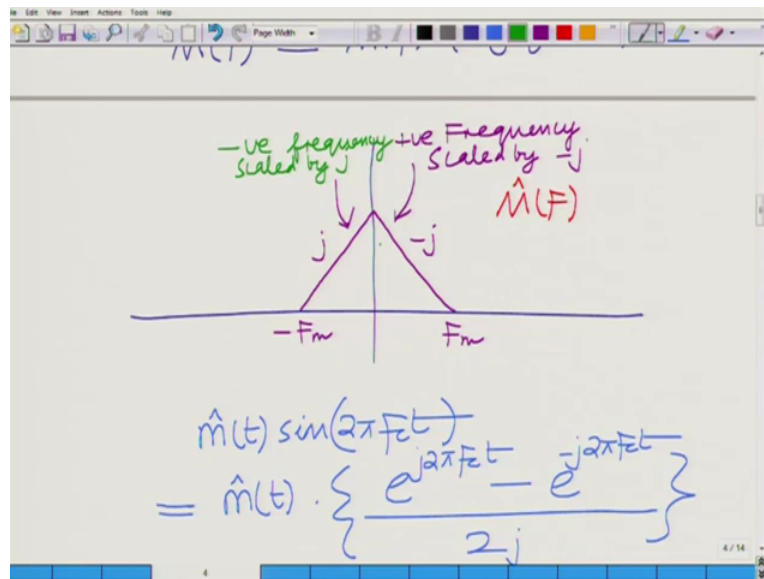 File Edit View Insert Actions Tools Help
Page Width
B I
-ve frequency scaled by j
+ve Frequency scaled by -j
M̂(F)
j
-j
-Fm
Fm
m̂(t) sin(2πFct)
= m̂(t) · { e^{j2πFct} - e^{-j2πFct} / 2j }
4 / 14
4